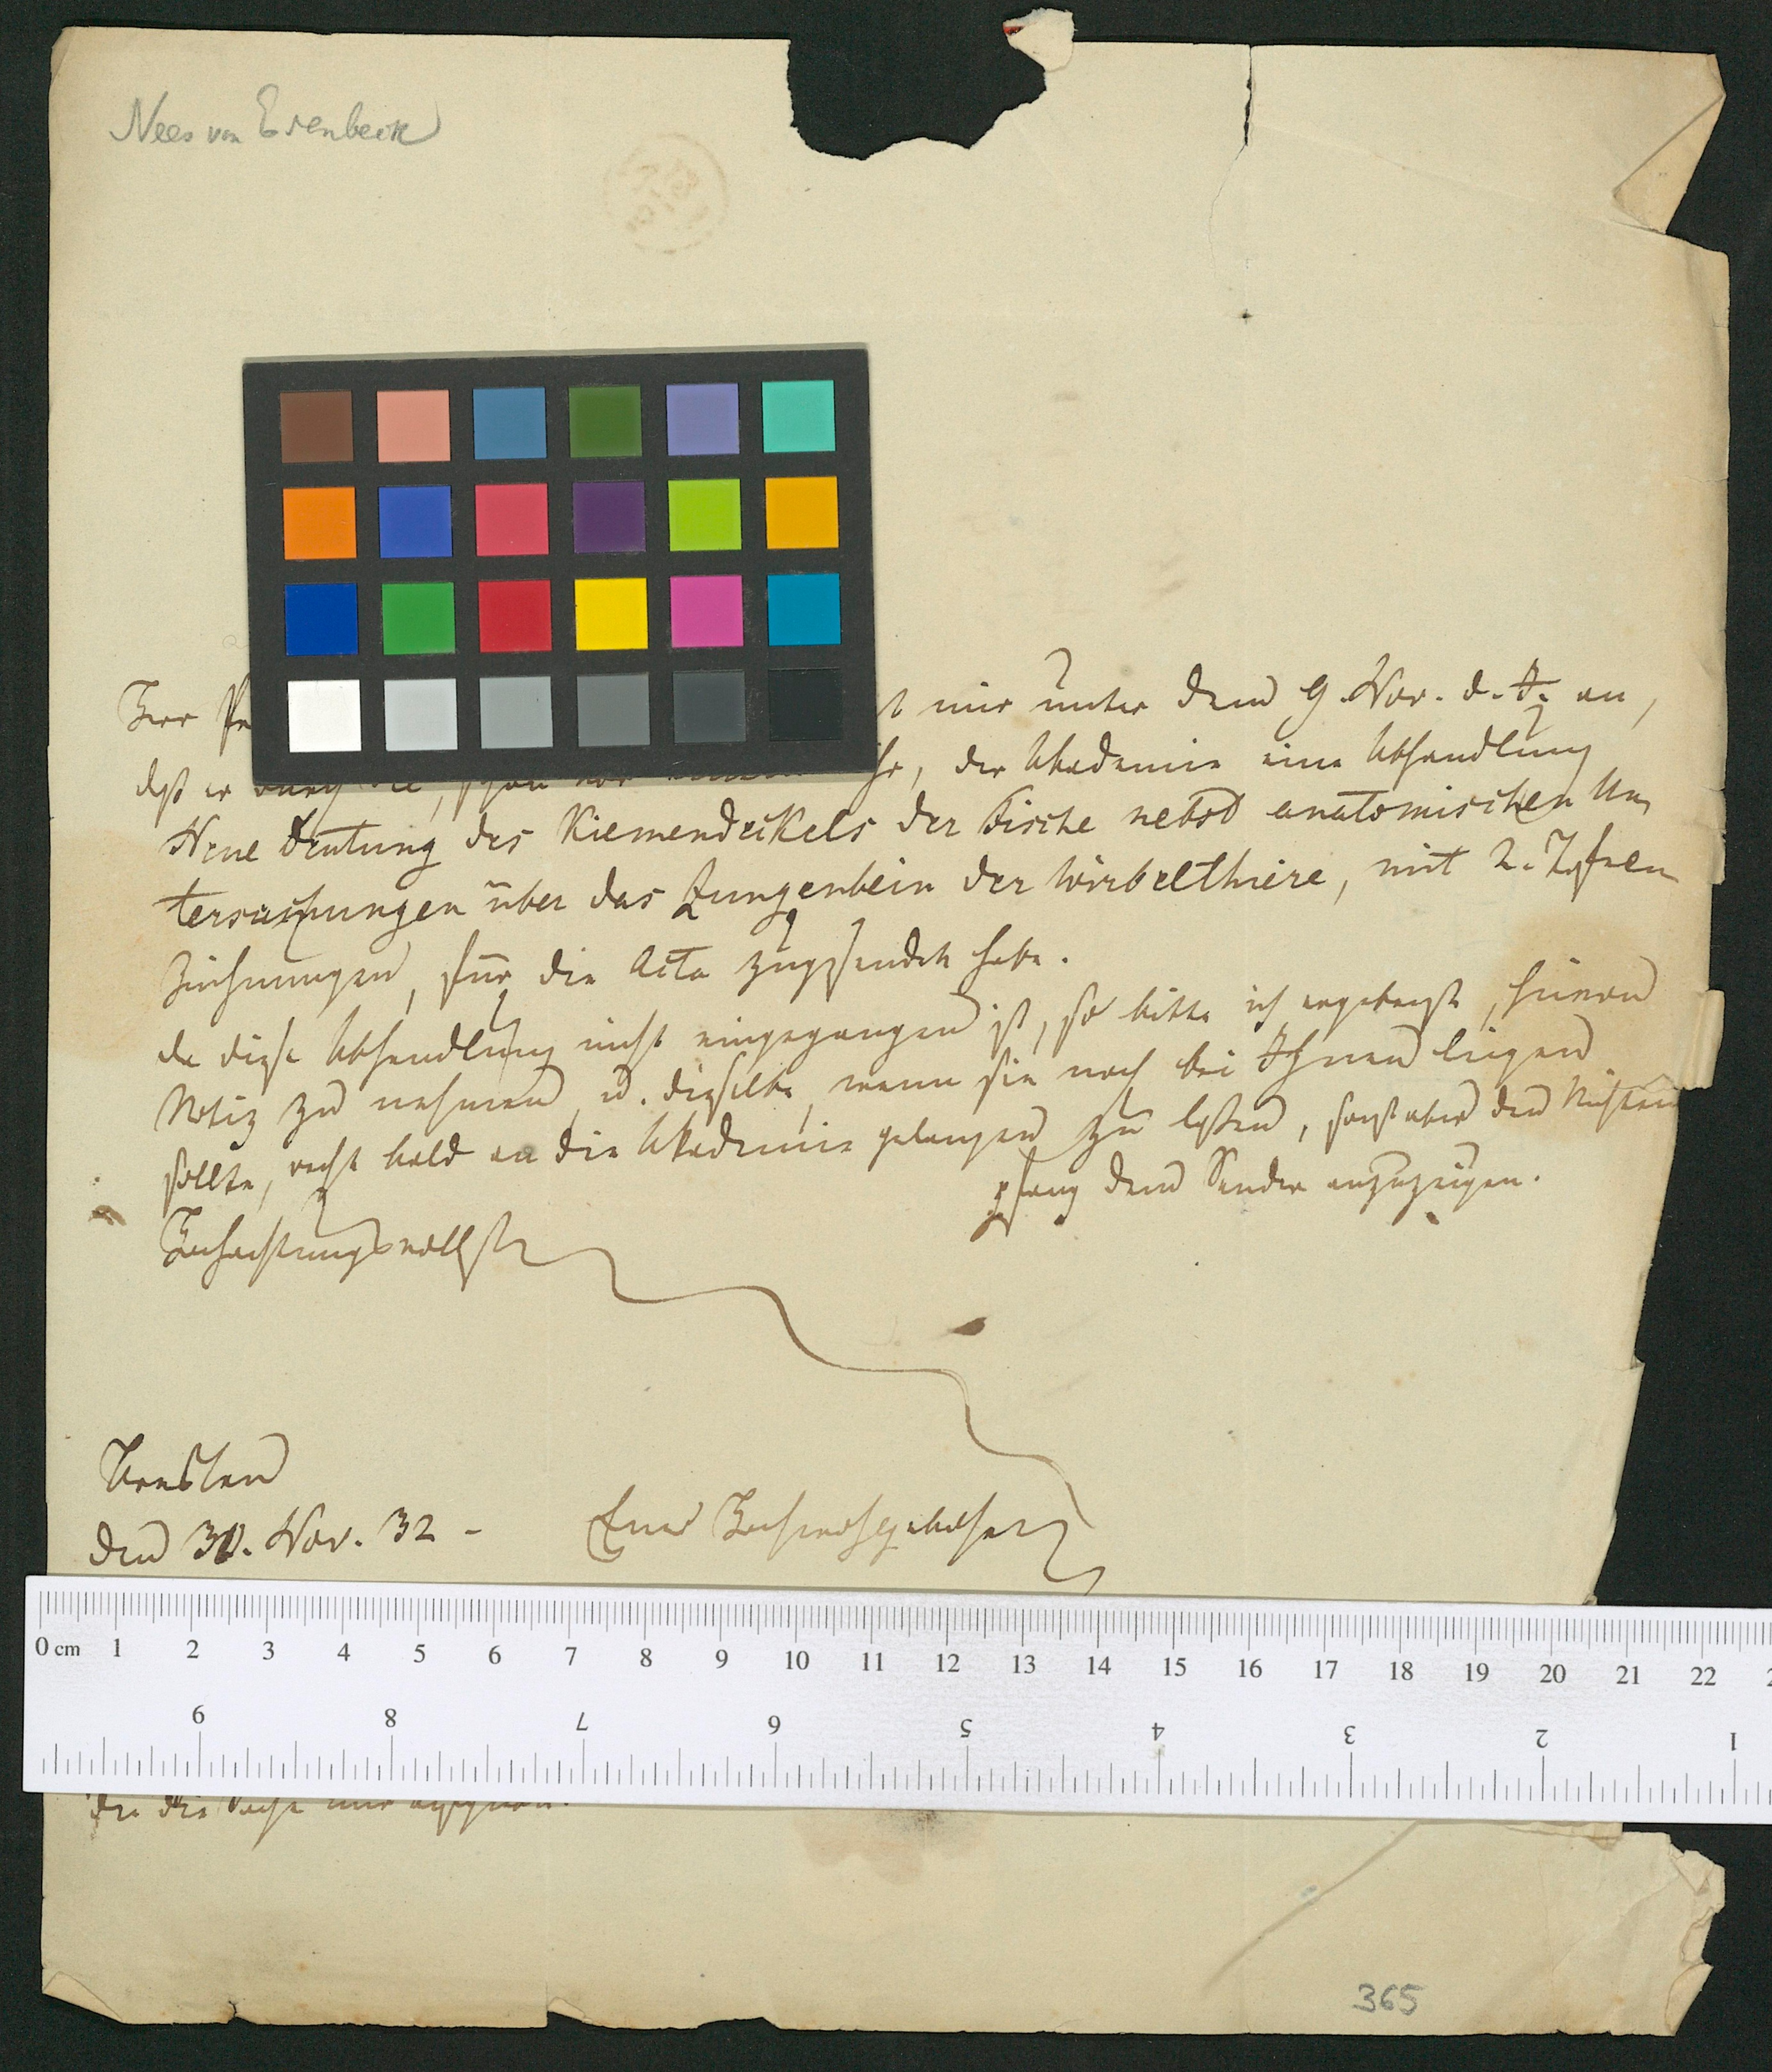 Nees von Esenbeck
Herr Pr
mir unter dem 9. Nov. d. J. an,
daß er durch, schon vor, der Akademie eine Abhandlung
Neue Deutung des Kiemendeckels der Fische nebst anatomischen Un
tersuchungen über das Zungenbein der Wirbelthiere, mit 2. Tafeln
Zeichnungen, für die Acta zugesendet habe.
da diese Abhandlung nicht eingegangen ist, so bitte ich ergebenst, hievon
Notiz zu nehmen u. dieselbe, wenn sie noch bei Ihnen liegen
sollte, recht bald an die Akademie gelangen zu lassen, sonst aber den Nichtem
pfang dem Sender anzuzeigen.
Hochachtungsvollst
Breslau
den 30. Nov. 32 -
Euer Hochwohlgeboren
0 cm 1 2 3 4 5 6 7 8 9 10 11 12 13 14 15 16 17 18 19 20 21 22
9 8 7 6 5 4 3 2 1
365